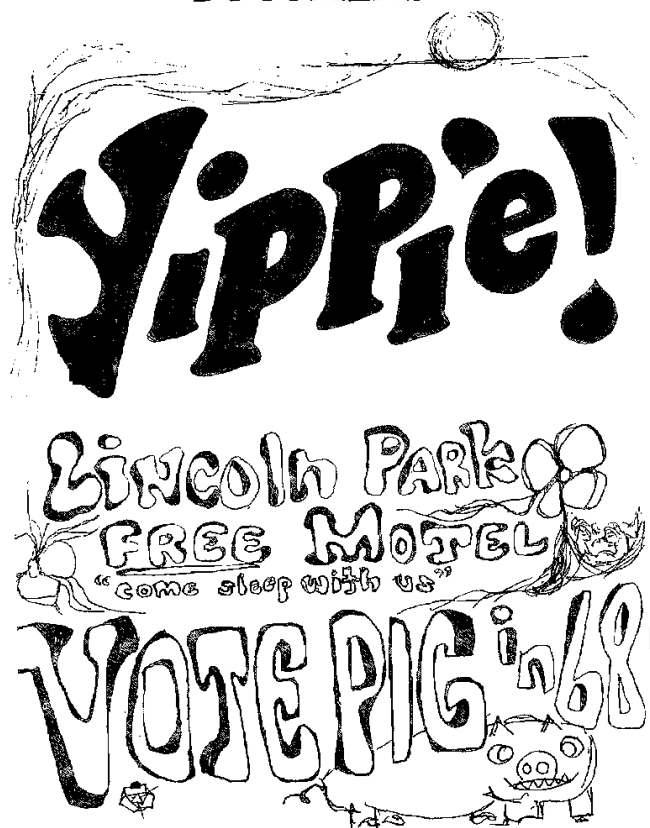 Yippie!
Lincoln Park
FREE MOTEL
"come sleep with us"
VOTE PIG in 68